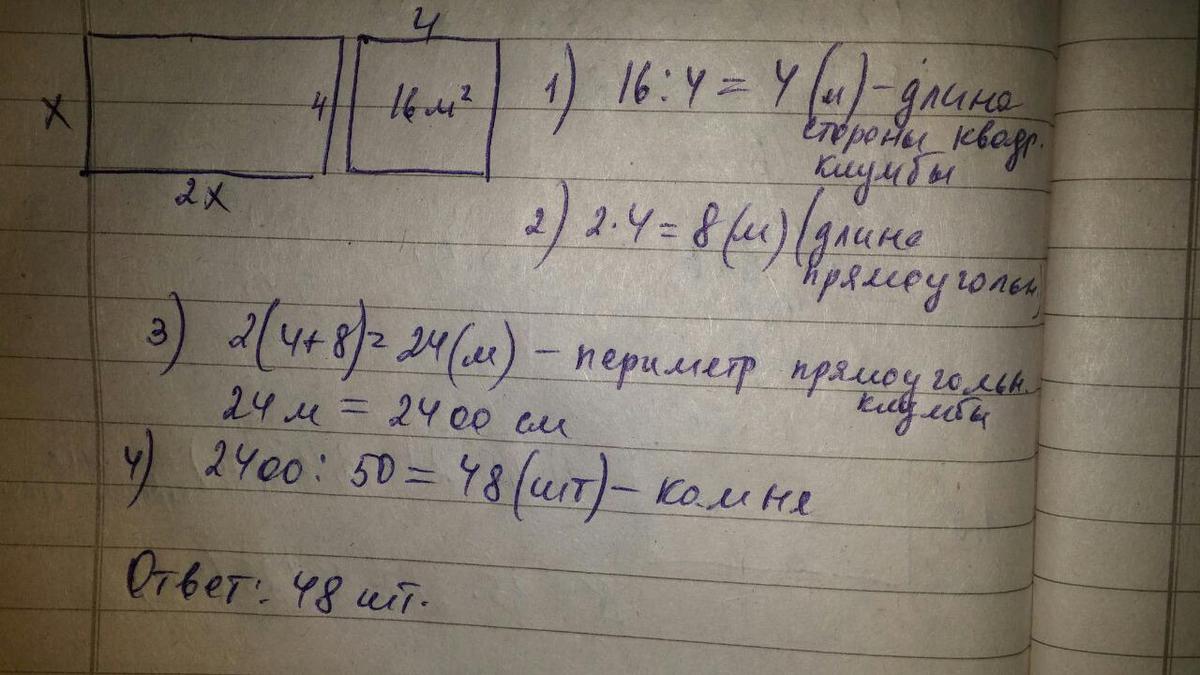 4
x
4
16 м²
2x
1) 16 : 4 = 4 (м) – длина
стороны квадр.
клумбы
2) 2 · 4 = 8 (м) (длина
прямоугольн)
3) 2(4+8) = 24 (м) – периметр прямоугольн.
клумбы
24 м = 2400 см
4) 2400 : 50 = 48 (шт) – камня
Ответ: 48 шт.